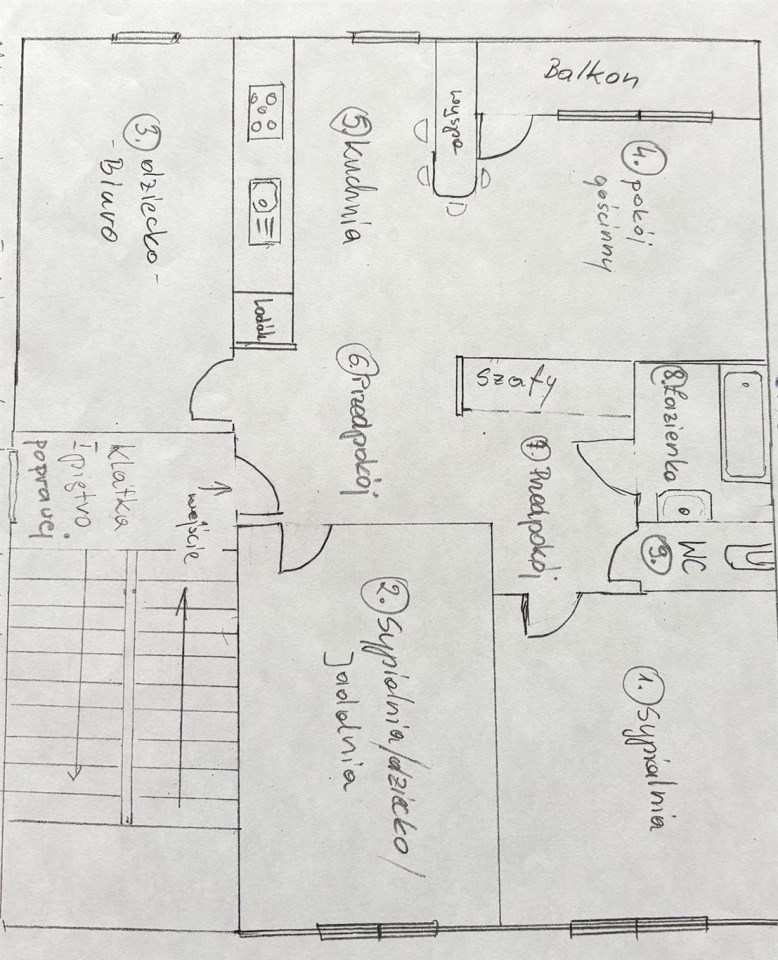 Balkon
wyspa
3. dziecko-
-Biuro
5. Kuchnia
4. pokój
gościnny
Lodów.
6. Przedpokój
Szafy
8. Łazienka
7. Przedpokój
WC
9.
Klatka
I piętro.
po prawej
wejście
2. Sypialnia/dziecko/
Jadalnia
1. Sypialnia